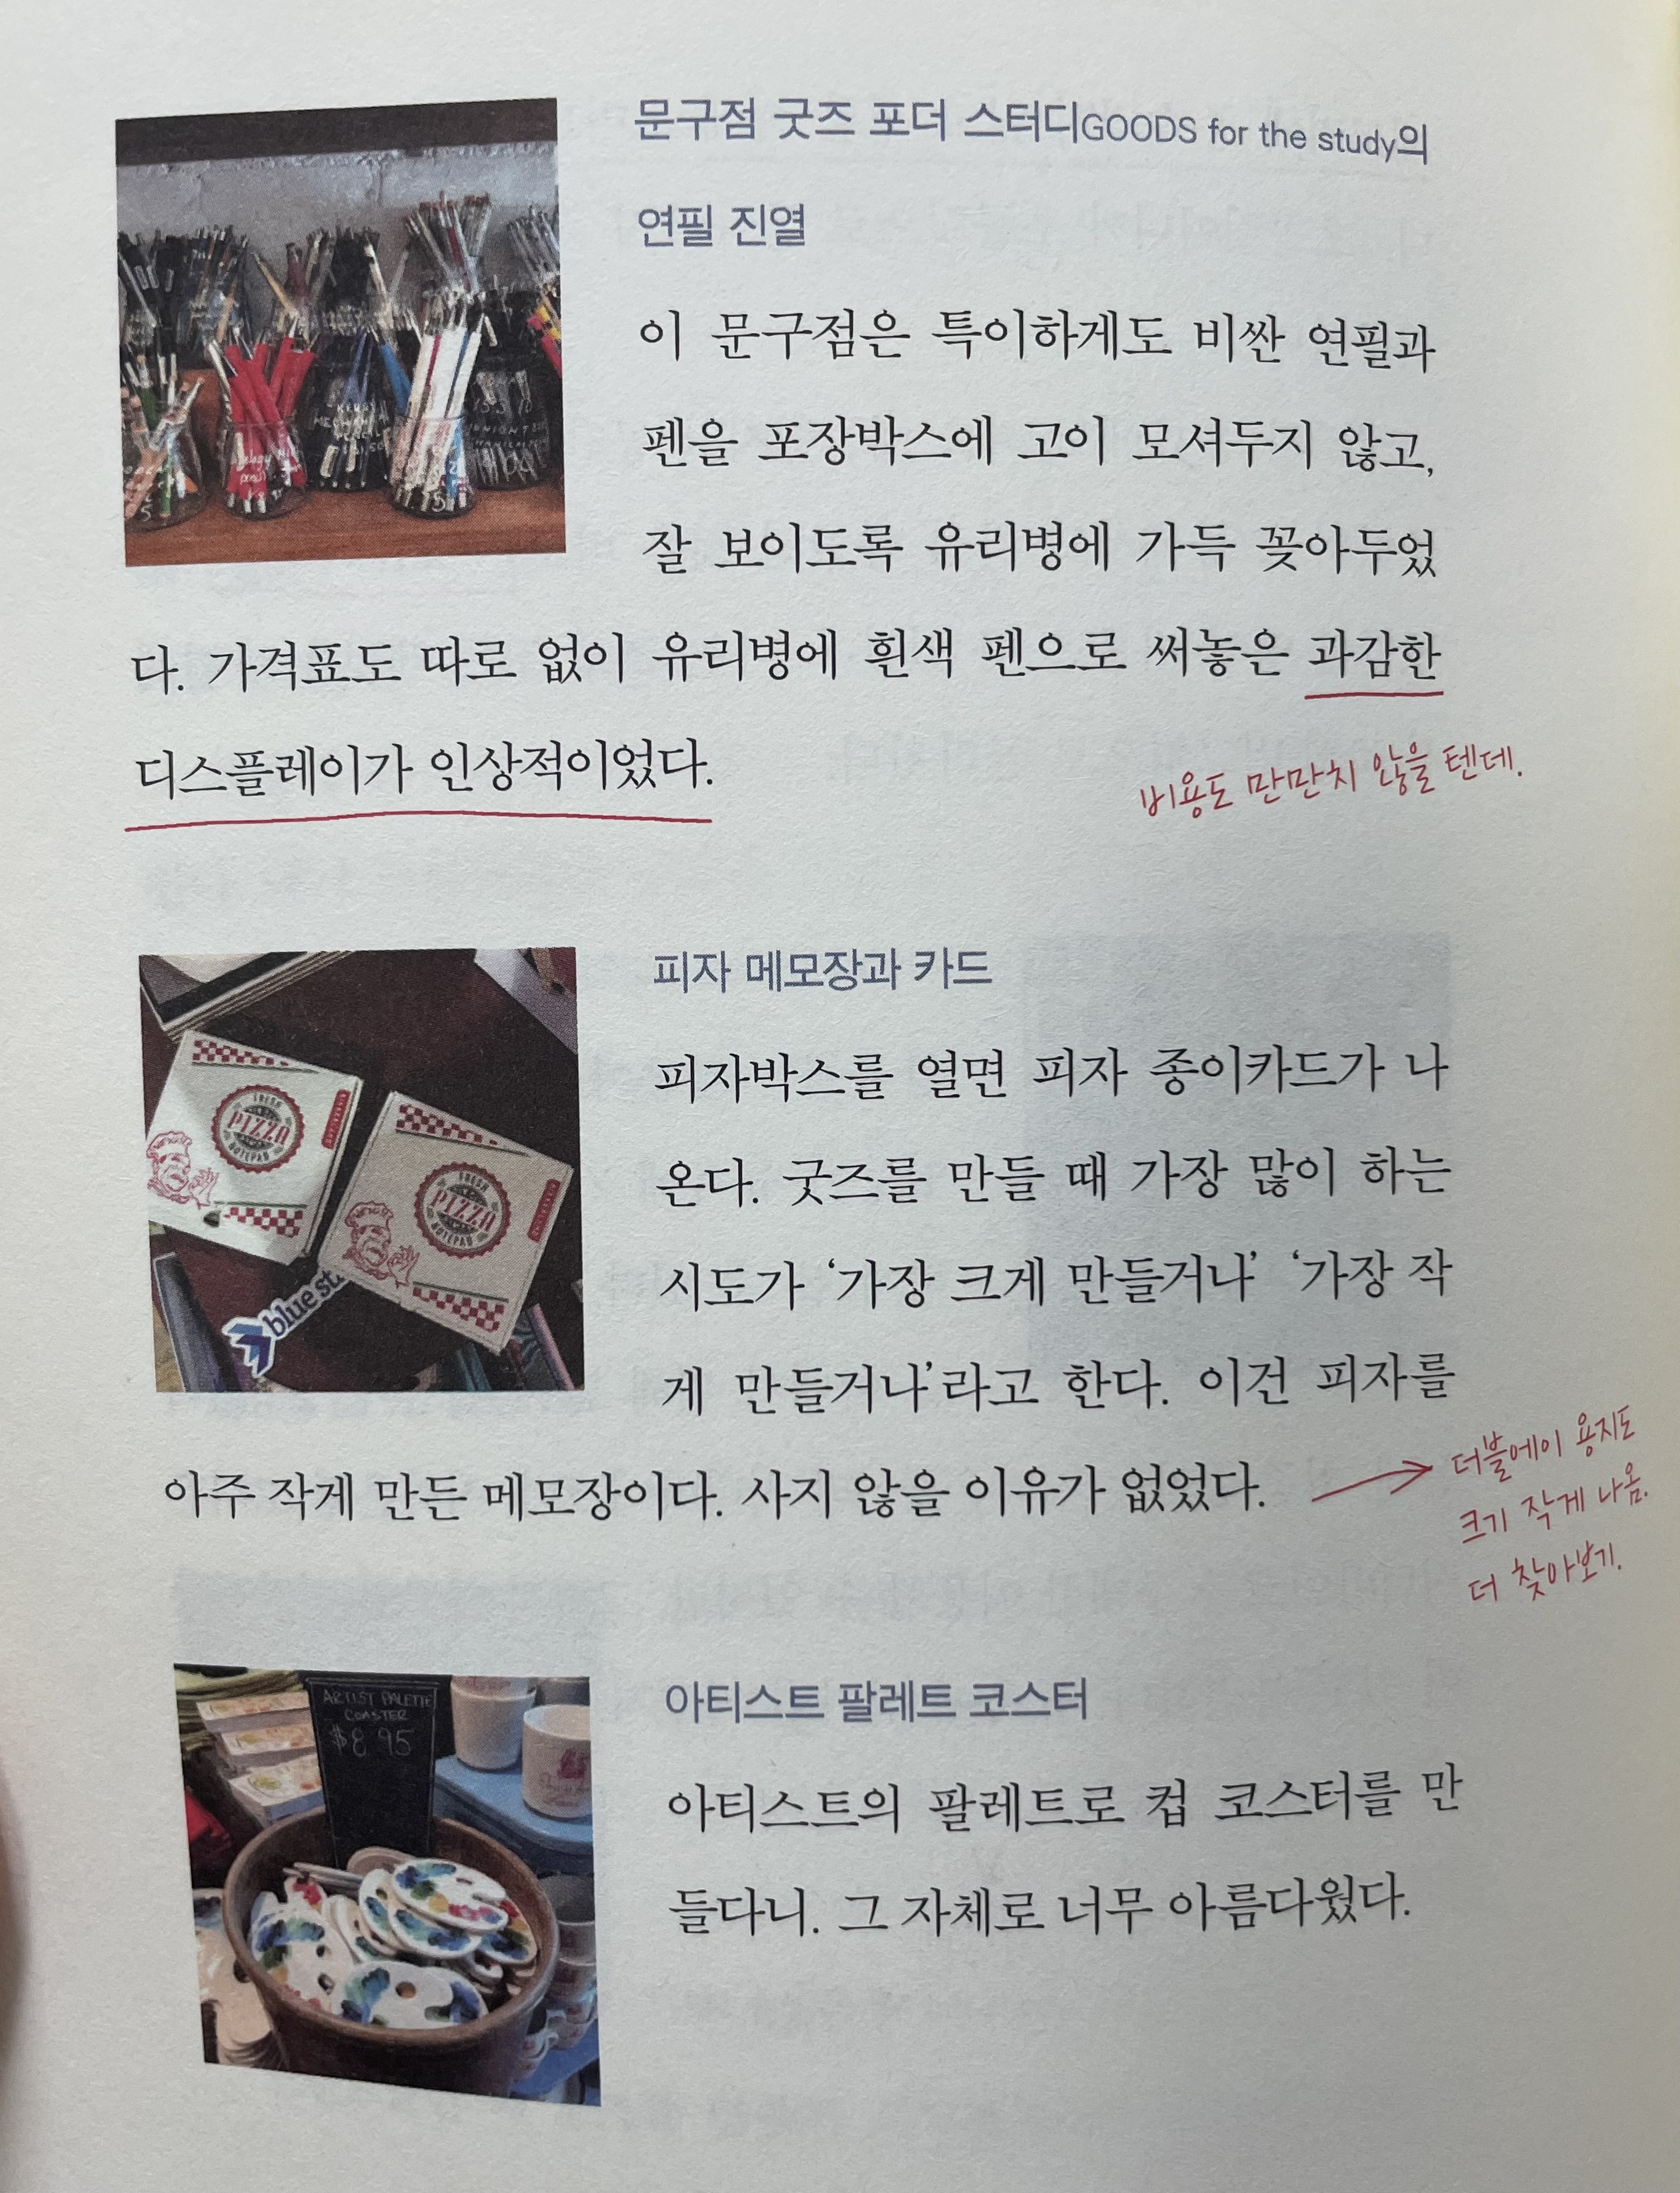 문구점 굿즈 포더 스터디GOODS for the study의
연필 진열
이 문구점은 특이하게도 비싼 연필과
펜을 포장박스에 고이 모셔두지 않고,
잘 보이도록 유리병에 가득 꽂아두었
다. 가격표도 따로 없이 유리병에 흰색 펜으로 써놓은 과감한
디스플레이가 인상적이었다.
비용도 만만치 않을 텐데.
피자 메모장과 카드
피자박스를 열면 피자 종이카드가 나
온다. 굿즈를 만들 때 가장 많이 하는
시도가 ‘가장 크게 만들거나’ ‘가장 작
게 만들거나’라고 한다. 이건 피자를
아주 작게 만든 메모장이다. 사지 않을 이유가 없었다.
더블에이 용지도
크기 작게 나옴.
더 찾아보기.
FRESH
PIZZA
NOTEPAD
FRESH
PIZZA
NOTEPAD
blue st
아티스트 팔레트 코스터
ARTIST PALETTE
COASTER
$8.95
아티스트의 팔레트로 컵 코스터를 만
들다니. 그 자체로 너무 아름다웠다.